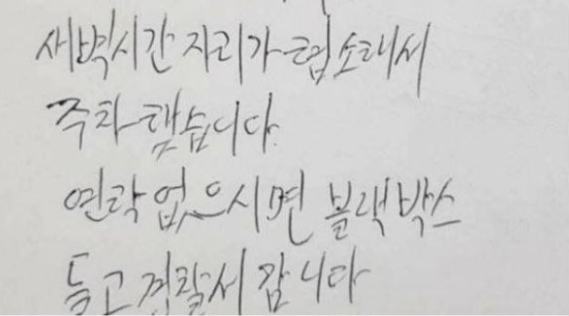 새벽시간 자리가 협소해서
주차했습니다.
연락 없으시면 블랙박스
들고 경찰서 갑니다